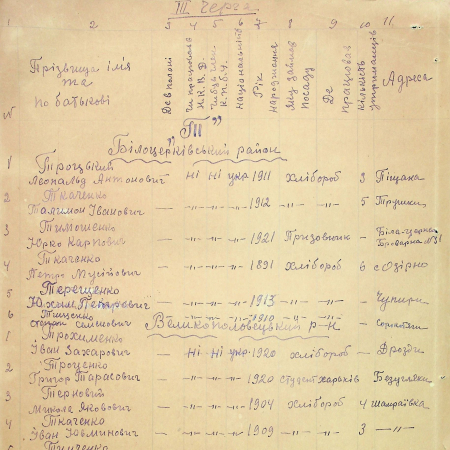 III Черга
1 2 3 4 5 6 7 8 9 10 11.
№ Прізвище ім'я та по батькові Де в полоні Чи працював Н.К.В.Д. К.П.б.У. національність Рік народження Яку займав посаду Де працював Кількість утриманців Адреса
"Т"
Білоцерківський район
1 Троцький
Леопальд Антонович ні ні укр 1911 хлібороб 3 Піщана
2 Ткаченко
Іванович – –"– –"– 1912 –"– – 5 Трушки
3 Тимошенко
Юрко Карпович – –"– –"– 1921 Призовник – Біла-Церква
4 Ткаченко
Петро – –"– –"– 1891 Хлібороб 6 с Озірно
5 Терещенко
Юхим Петрович – –"– –"– 1913 –"– –"– Чупири
6 Тищенко
Степан Семенович – –"– –"– 1910 –"– –
Великополовецький р-н
1 Трохименко
Іван Захарович – ні ні укр 1920 хлібороб – Дрозди
2 Троценко
Григор Тарасович – –"– –"– 1920 студент харьків Безугляки
3 Терновий
Микола Яковович – –"– –"– 1904 Хлібороб 4 Шамраївка
4 Ткаченко
Іван – –"– –"– 1909 –"– –"– 3 –"–